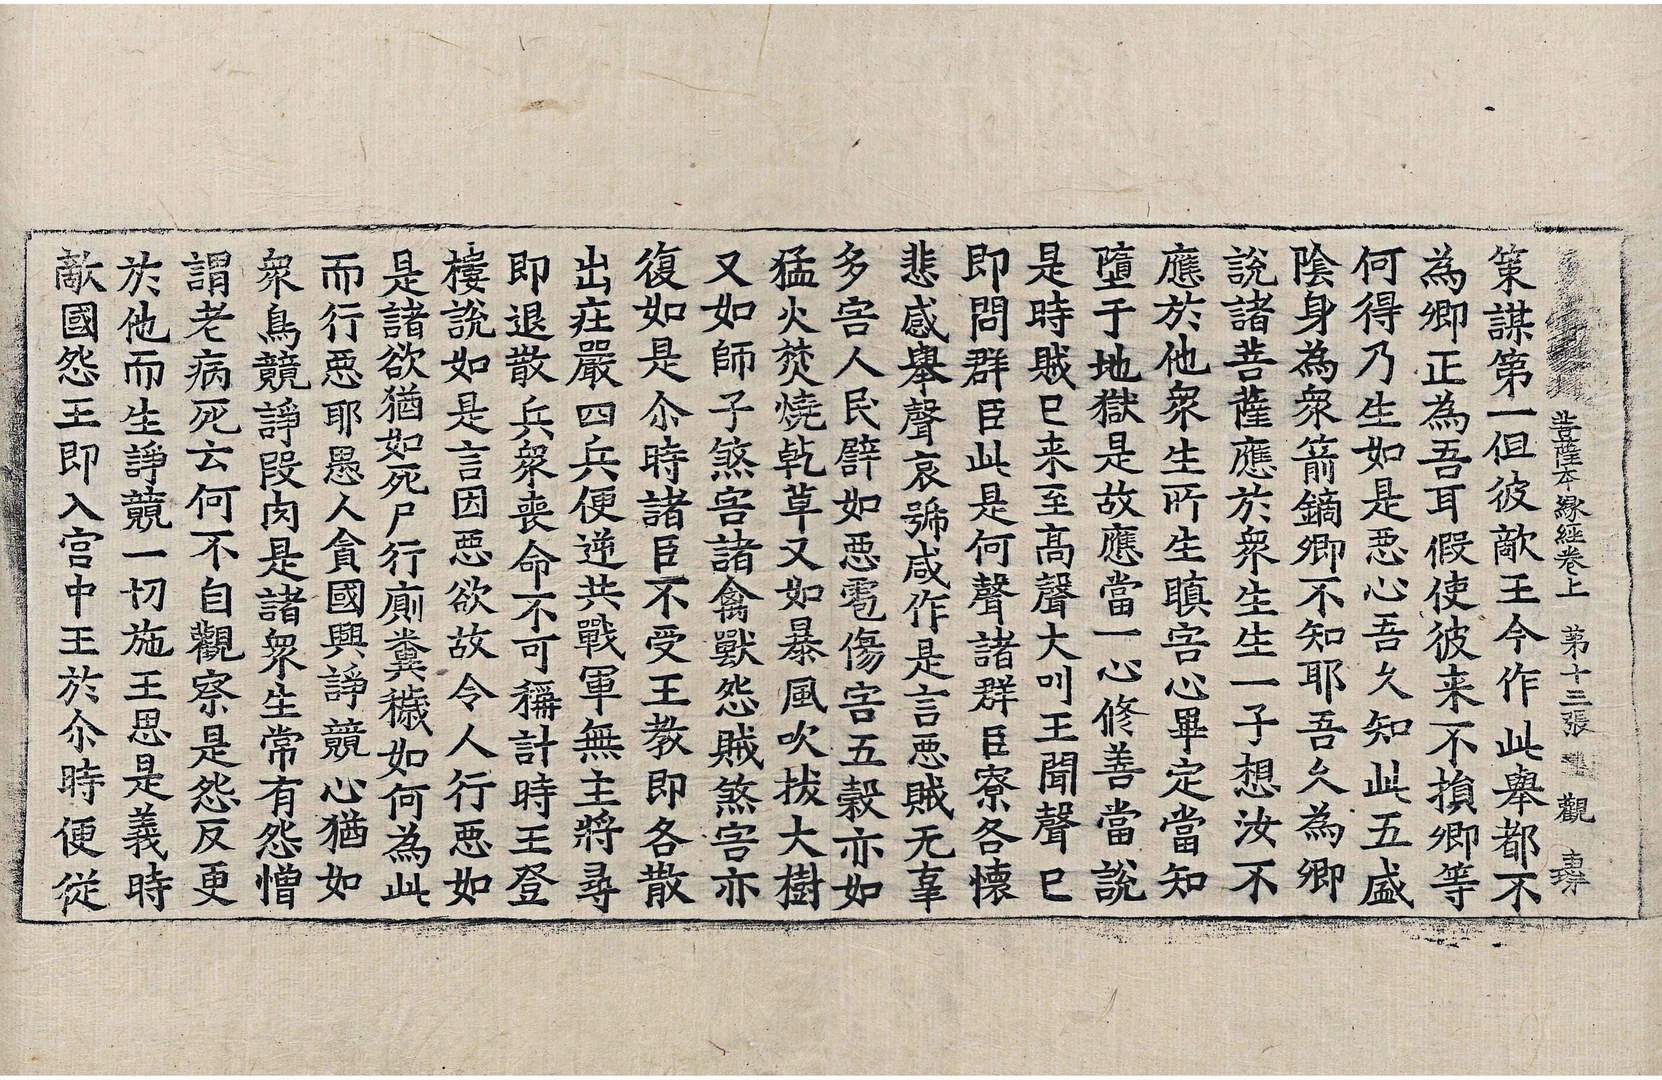 菩薩本縁経卷上　第十三張　觀
策謀第一但彼敵王今作此舉都不
為卿正為吾耳假使彼来不損卿等
何得乃生如是惡心吾久知此五盛
陰身為衆箭鏑卿不知耶吾久為卿
說諸菩薩應於衆生生一子想汝不
應於他衆生所生瞋害心畢定當知
墮于地獄是故應當一心修善當說
是時賊已来至高聲大叫王聞聲已
即問群臣此是何聲諸群臣寮各懷
悲慼舉聲哀號咸作是言惡賊无辜
多害人民譬如惡雹傷害五穀亦如
猛火焚燒乹草又如暴風吹拔大樹
又如師子煞害諸禽獸怨賊煞害亦
復如是尒時諸臣不受王教即各散
出庄嚴四兵便逆共戰軍無主將尋
即退散兵衆喪命不可稱計時王登
樓說如是言因惡欲故令人行惡如
是諸欲猶如死尸行廁糞穢如何為此
而行惡耶愚人貪國興諍競心猶如
衆鳥競諍段肉是諸衆生常有怨憎
謂老病死云何不自觀察是怨反更
於他而生諍競一切施王思是義時
敵國怨王即入宮中王於尒時便從